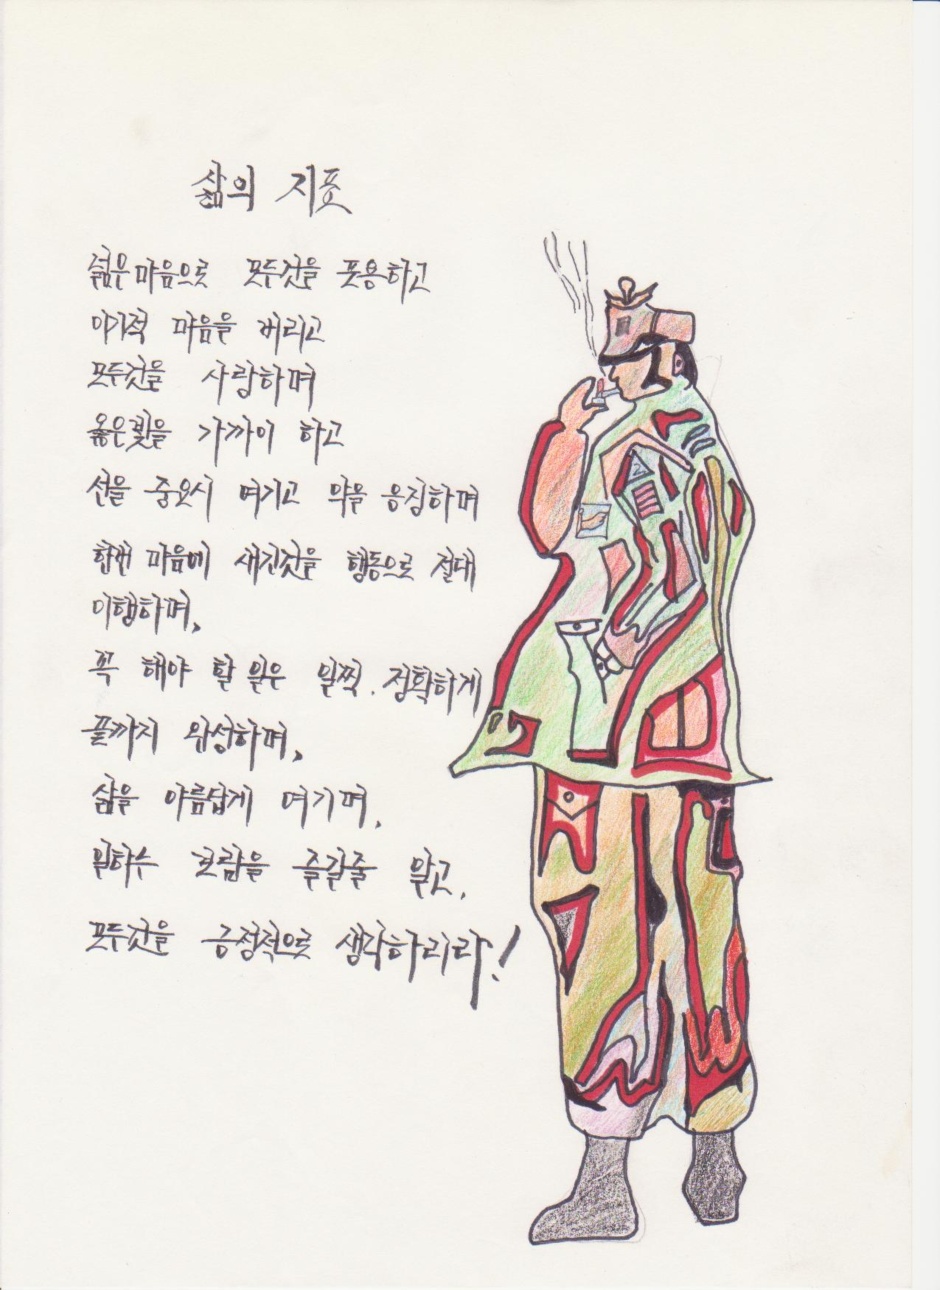 삶의 지표
넒은마음으로 모두것을 포용하고
이기적 마음을 버리고
모두것을 사랑하며
옳은빛을 가까이 하고
선을 중요시 여기고 악을 응징하며
한번 마음에 새긴것을 행동으로 절대
이행하며,
꼭 해야 할 일은 일찍, 정확하게
끝까지 완성하며,
삶을 아름답게 여기며,
일하는 보람을 즐길줄 알고,
모두것을 긍정적으로 생각하리라!